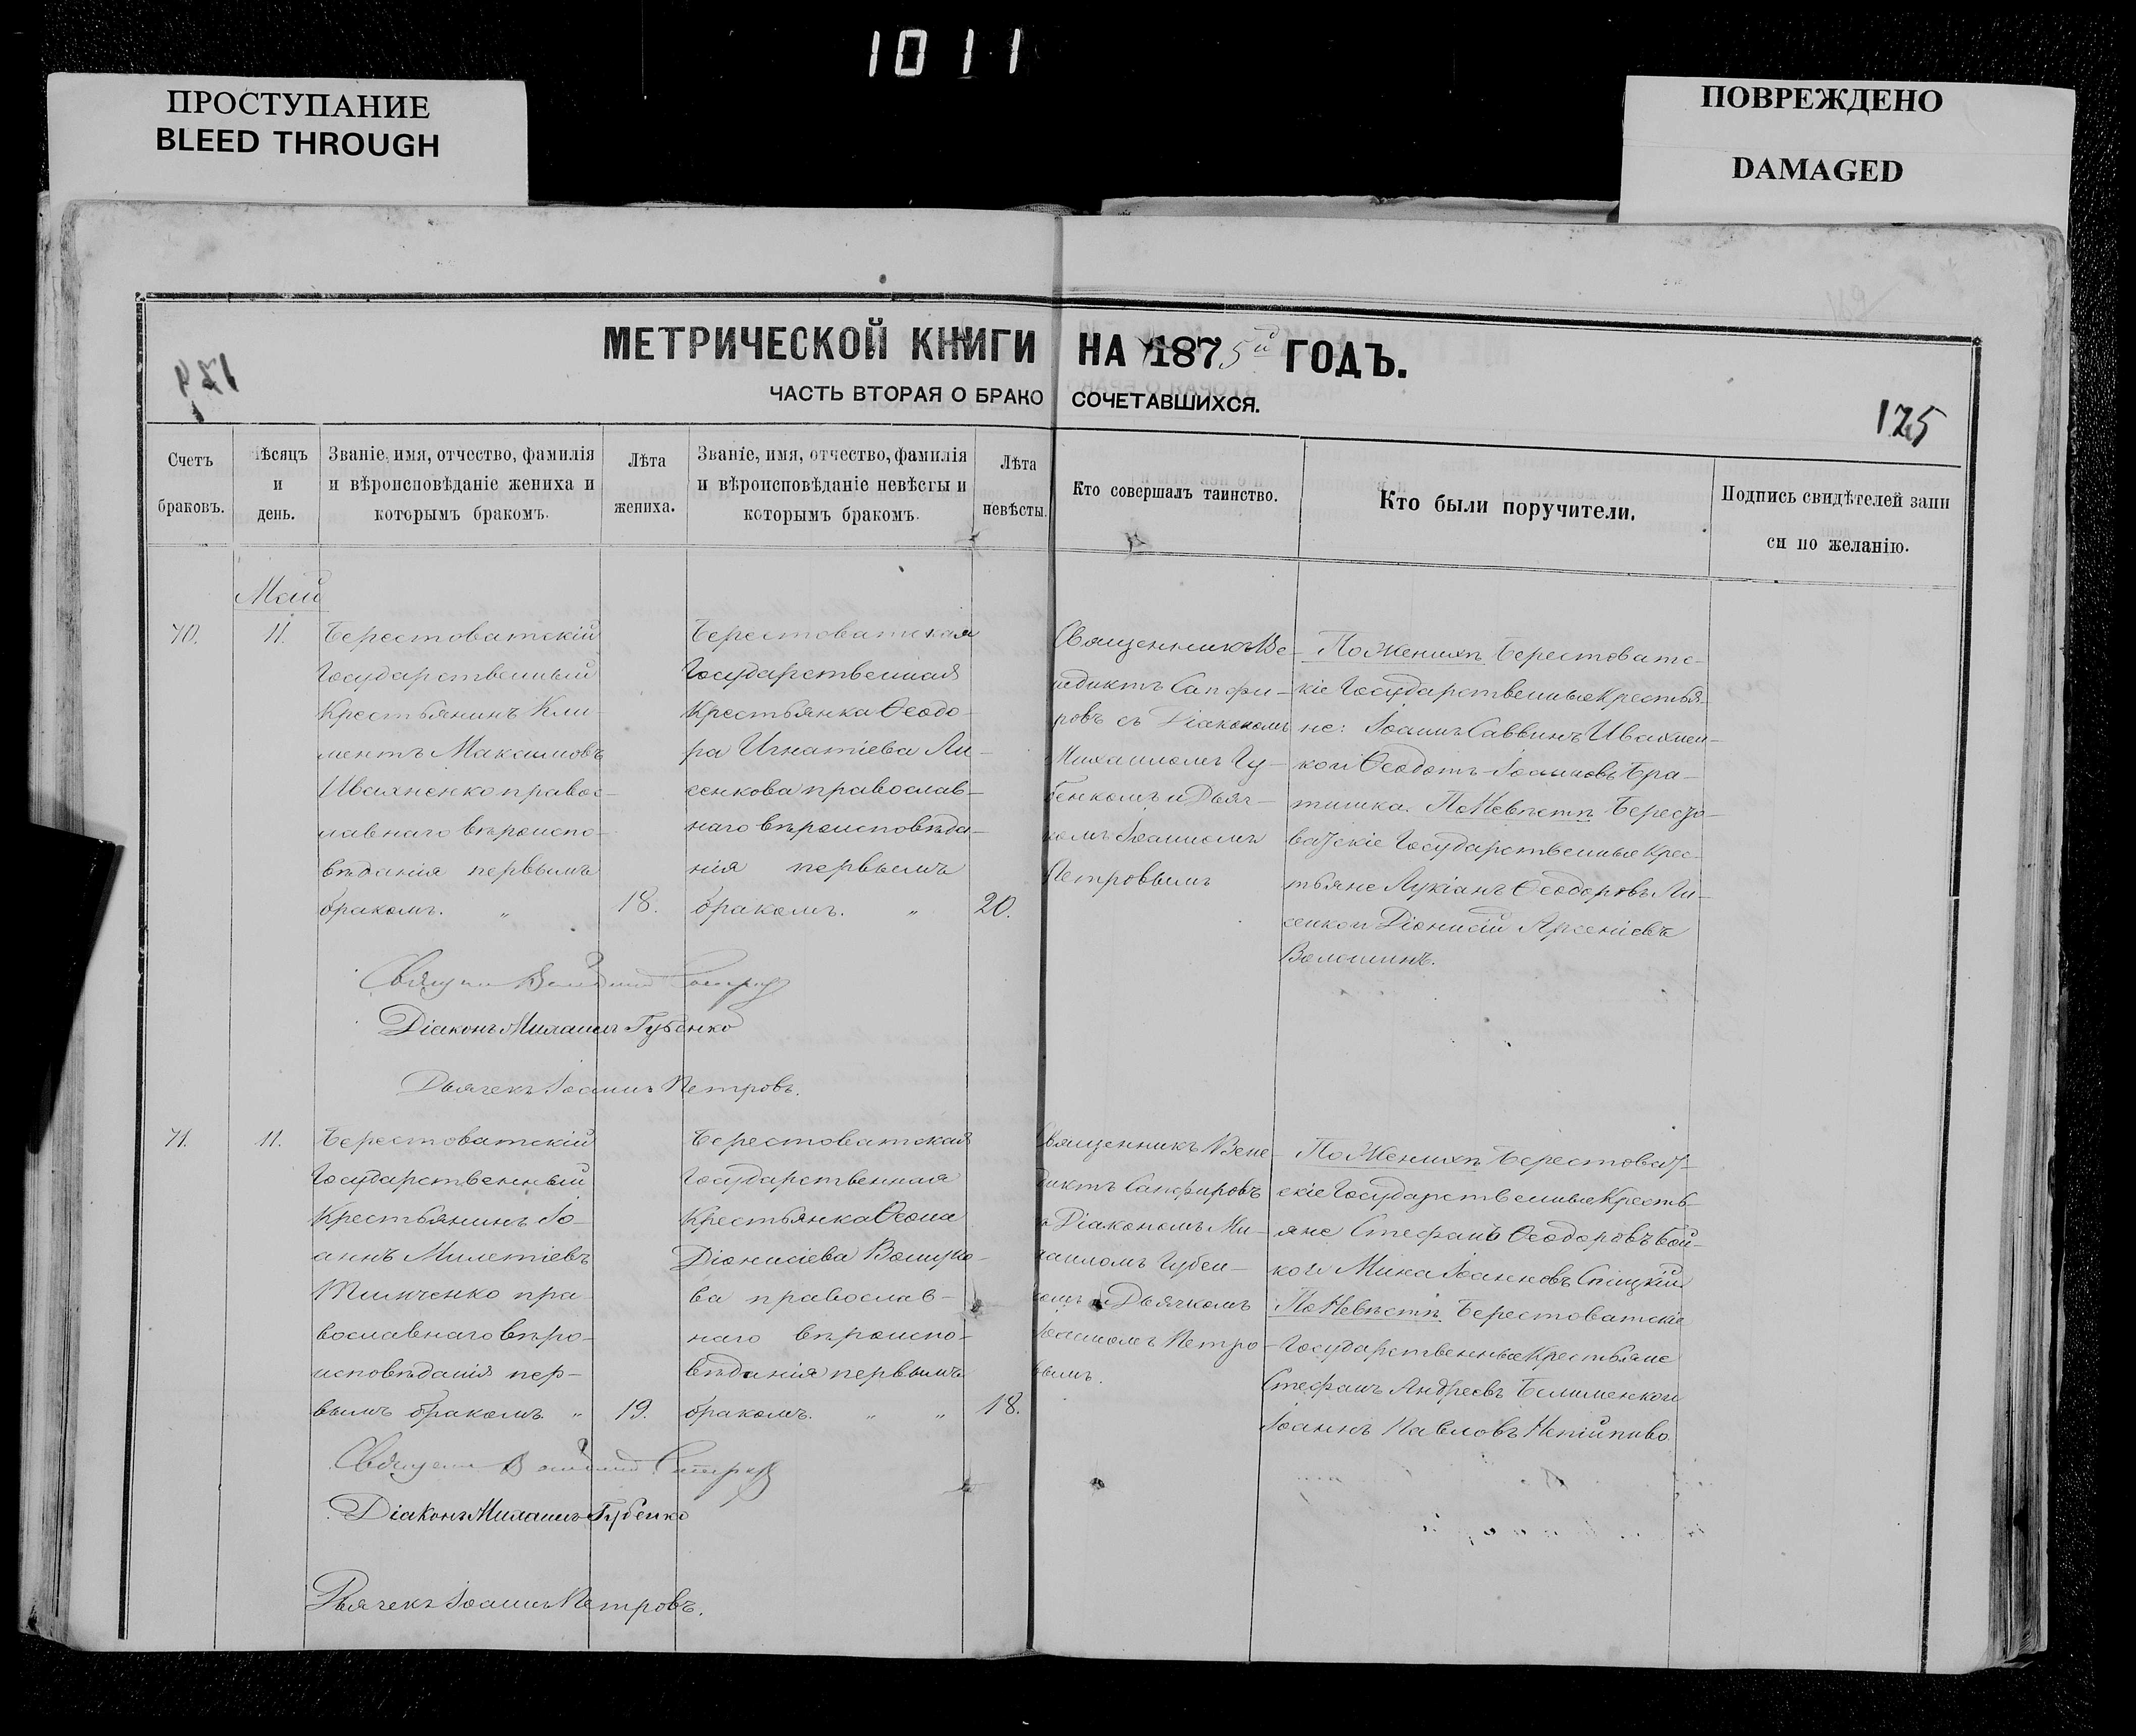 1011
ПРОСТУПАНИЕ
BLEED THROUGH
ПОВРЕЖДЕНО
DAMAGED
МЕТРИЧЕСКОЙ КНИГИ НА 1875й ГОДЪ.
ЧАСТЬ ВТОРАЯ О БРАКОСОЧЕТАВШИХСЯ.
125
Счетъ
браковъ.
Мѣсяцъ
и
день.
Званіе, имя, отчество, фамилія
и вѣроисповѣданіе жениха и
которымъ бракомъ.
Лѣта
жениха.
Званіе, имя, отчество, фамилія
и вѣроисповѣданіе невѣсты и
которымъ бракомъ.
Лѣта
невѣсты.
Кто совершалъ таинство.
Кто были поручители.
Подпись свидѣтелей запи
си по желанію.
Май
70.
11.
Берестоватскій
Государственный
Крестьянинъ Кли-
ментъ Максимовъ
Ивахненко правос-
лавнаго вѣроиспо-
вѣданія первымъ
бракомъ. „
18.
Берестоватская
Государственная
Крестьянка Ѳеодо-
ра Игнатіева Ли-
сенкова православ-
наго вѣроисповѣда-
нія первымъ
бракомъ. „
20.
Священникъ Ве-
недиктъ Сапфи-
ровъ съ Діакономъ
Михаиломъ Гу-
бенкомъ и Дьяч-
комъ Іоанномъ
Петровымъ
По Женихѣ Берестоватс-
кіе Государственные Крестья-
не: Іоаннъ Саввинъ Ивахнен-
ко и Ѳеодотъ Іоанновъ Бра-
тишка. По Невѣстѣ Бересто-
ватскіе Государственные Крес-
тьяне Лукіанъ Ѳеодоровъ Ли-
сенко и Діонисій Арсеніевъ
Волошинъ.
Діаконъ Михаилъ Губенко
Дьячекъ Іоаннъ Петровъ.
71.
11.
Берестоватскій
Государственный
Крестьянинъ Іо-
аннъ Милетіевъ
Тимченко пра-
вославнаго вѣро-
исповѣданія пер-
вымъ бракомъ. „
19.
Берестоватская
Государственная
Крестьянка Ѳеона
Діонисіева
ва православ-
наго вѣроиспо-
вѣданія первымъ
бракомъ. „ „
18.
Священникъ Вене-
диктъ Сапфировъ
Діакономъ Ми-
хаиломъ Губен-
комъ и Дьячкомъ
Іоанномъ Петро-
вымъ.
По Женихѣ Берестоват-
скіе Государственные Кресть-
яне Стефанъ Ѳеодоровъ Бой-
ко и Мина Іоанновъ Спицкій
По Невѣстѣ Берестоватскіе
Государственные Крестьяне
Стефанъ Андреевъ
Іоаннъ Павловъ Непійпиво
Діаконъ Михаилъ Губенко
Дьячекъ Іоаннъ Петровъ.